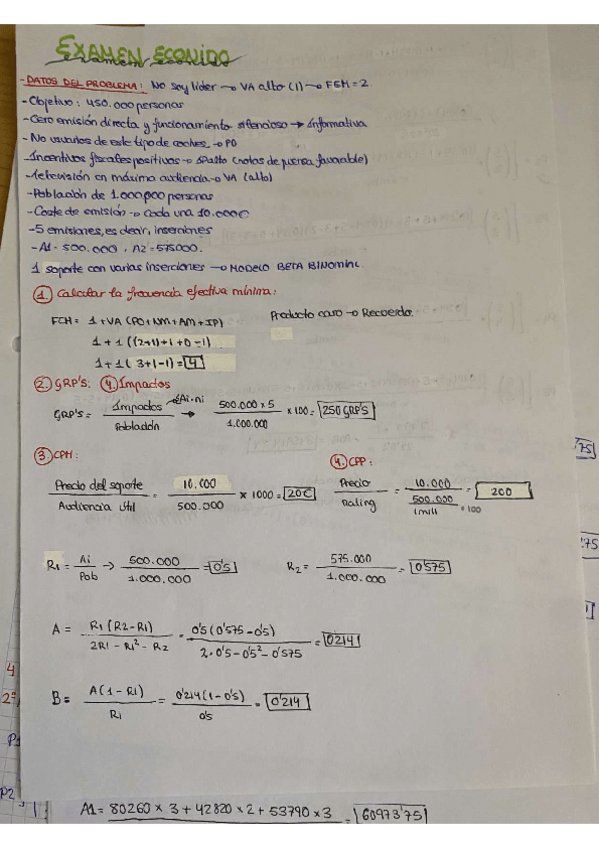 EXAMEN ECONIDO
- DATOS DEL PROBLEMA: No soy líder → VA alto (1) → FEM = 2
- Objetivo: 450.000 personas
- Cero emisión directa y funcionamiento silencioso → Informativa
- No usuarios de este tipo de coches → PO
- Incentivos fiscales positivos → IP alto (notas de prensa favorable)
- Televisión en máxima audiencia → VA (alto)
- Población de 1.000.000 personas
- Coste de emisión → Cada una 10.000€
- 5 emisiones, es decir, inserciones
- A1 = 500.000 . A2 = 575000.
1 soporte con varias inserciones → MODELO BETA BINOMIAL
1 Calcular la frecuencia efectiva mínima:
FEM = 1 + VA (PO + NM + AM + IP) Producto caro → Recuerdo.
1 + 1 ((2+1) + 1 + 0 - 1)
1 + 1 (3+1-1) = 4
2 GRP'S: 4 Impactos
GRP'S = Impactos / Población → Ai·ni 500.000 x 5 / 1.000.000 x 100 = 250 GRP'S
3 CPM: 4. CPP:
Precio del soporte / Audiencia útil = 10.000 / 500.000 x 1000 = 20€
Precio / Rating = 10.000 / 500.000 / 1mill · 100 = 200
R1 = Ai / Pob → 500.000 / 1.000.000 = 0'5 R2 = 575.000 / 1.000.000 = 0'575
A = R1 (R2 - R1) / 2R1 - R1² - R2 = 0'5 (0'575 - 0'5) / 2 · 0'5 - 0'5² - 0'575 = 0'214
B = A (1 - R1) / R1 = 0'214 (1 - 0'5) / 0'5 = 0'214
A1 = 80260 x 3 + 42820 x 2 + 53790 x 3 = 60973'75
75
'75
4
2ª
P1
P2